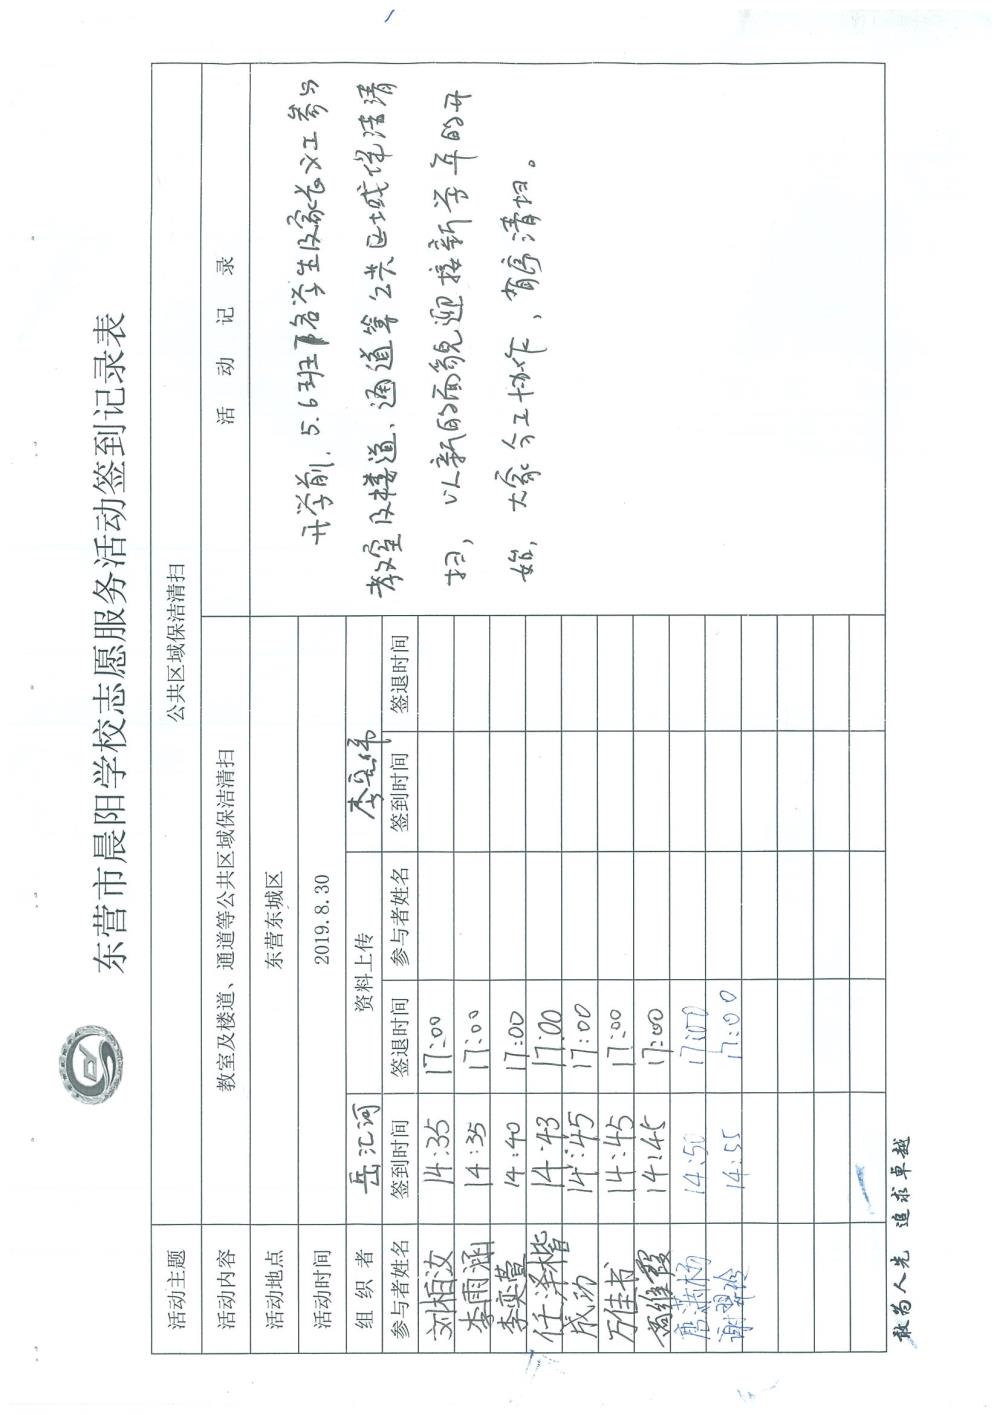 东营市晨阳学校志愿服务活动签到记录表
活动主题 公共区域保洁清扫
活动内容 教室及楼道、通道等公共区域保洁清扫 活 动 记 录
活动地点 东营东城区
活动时间 2019.8.30
组 织 者 岳汇河 资料上传
参与者姓名 签到时间 签退时间 参与者姓名 签到时间 签退时间
刘柏汝 14:35 17:00
李雨涵 14:35 17:00
李奕萱 14:40 17:00
任泽楷 14:43 17:00
成功 14:45 17:00
万佳书 14:45 17:00
维霞 14:45 17:00
唐 杨 14:50 17:00
谢羿 14:55 17:00
开学前,5.6班 各学生及家长义工参与
教室及楼道、通道等公共区域保洁清
扫,以新的面貌迎接新学年的开
始,大家分工协作,有序清扫。
敢为人先 追求卓越